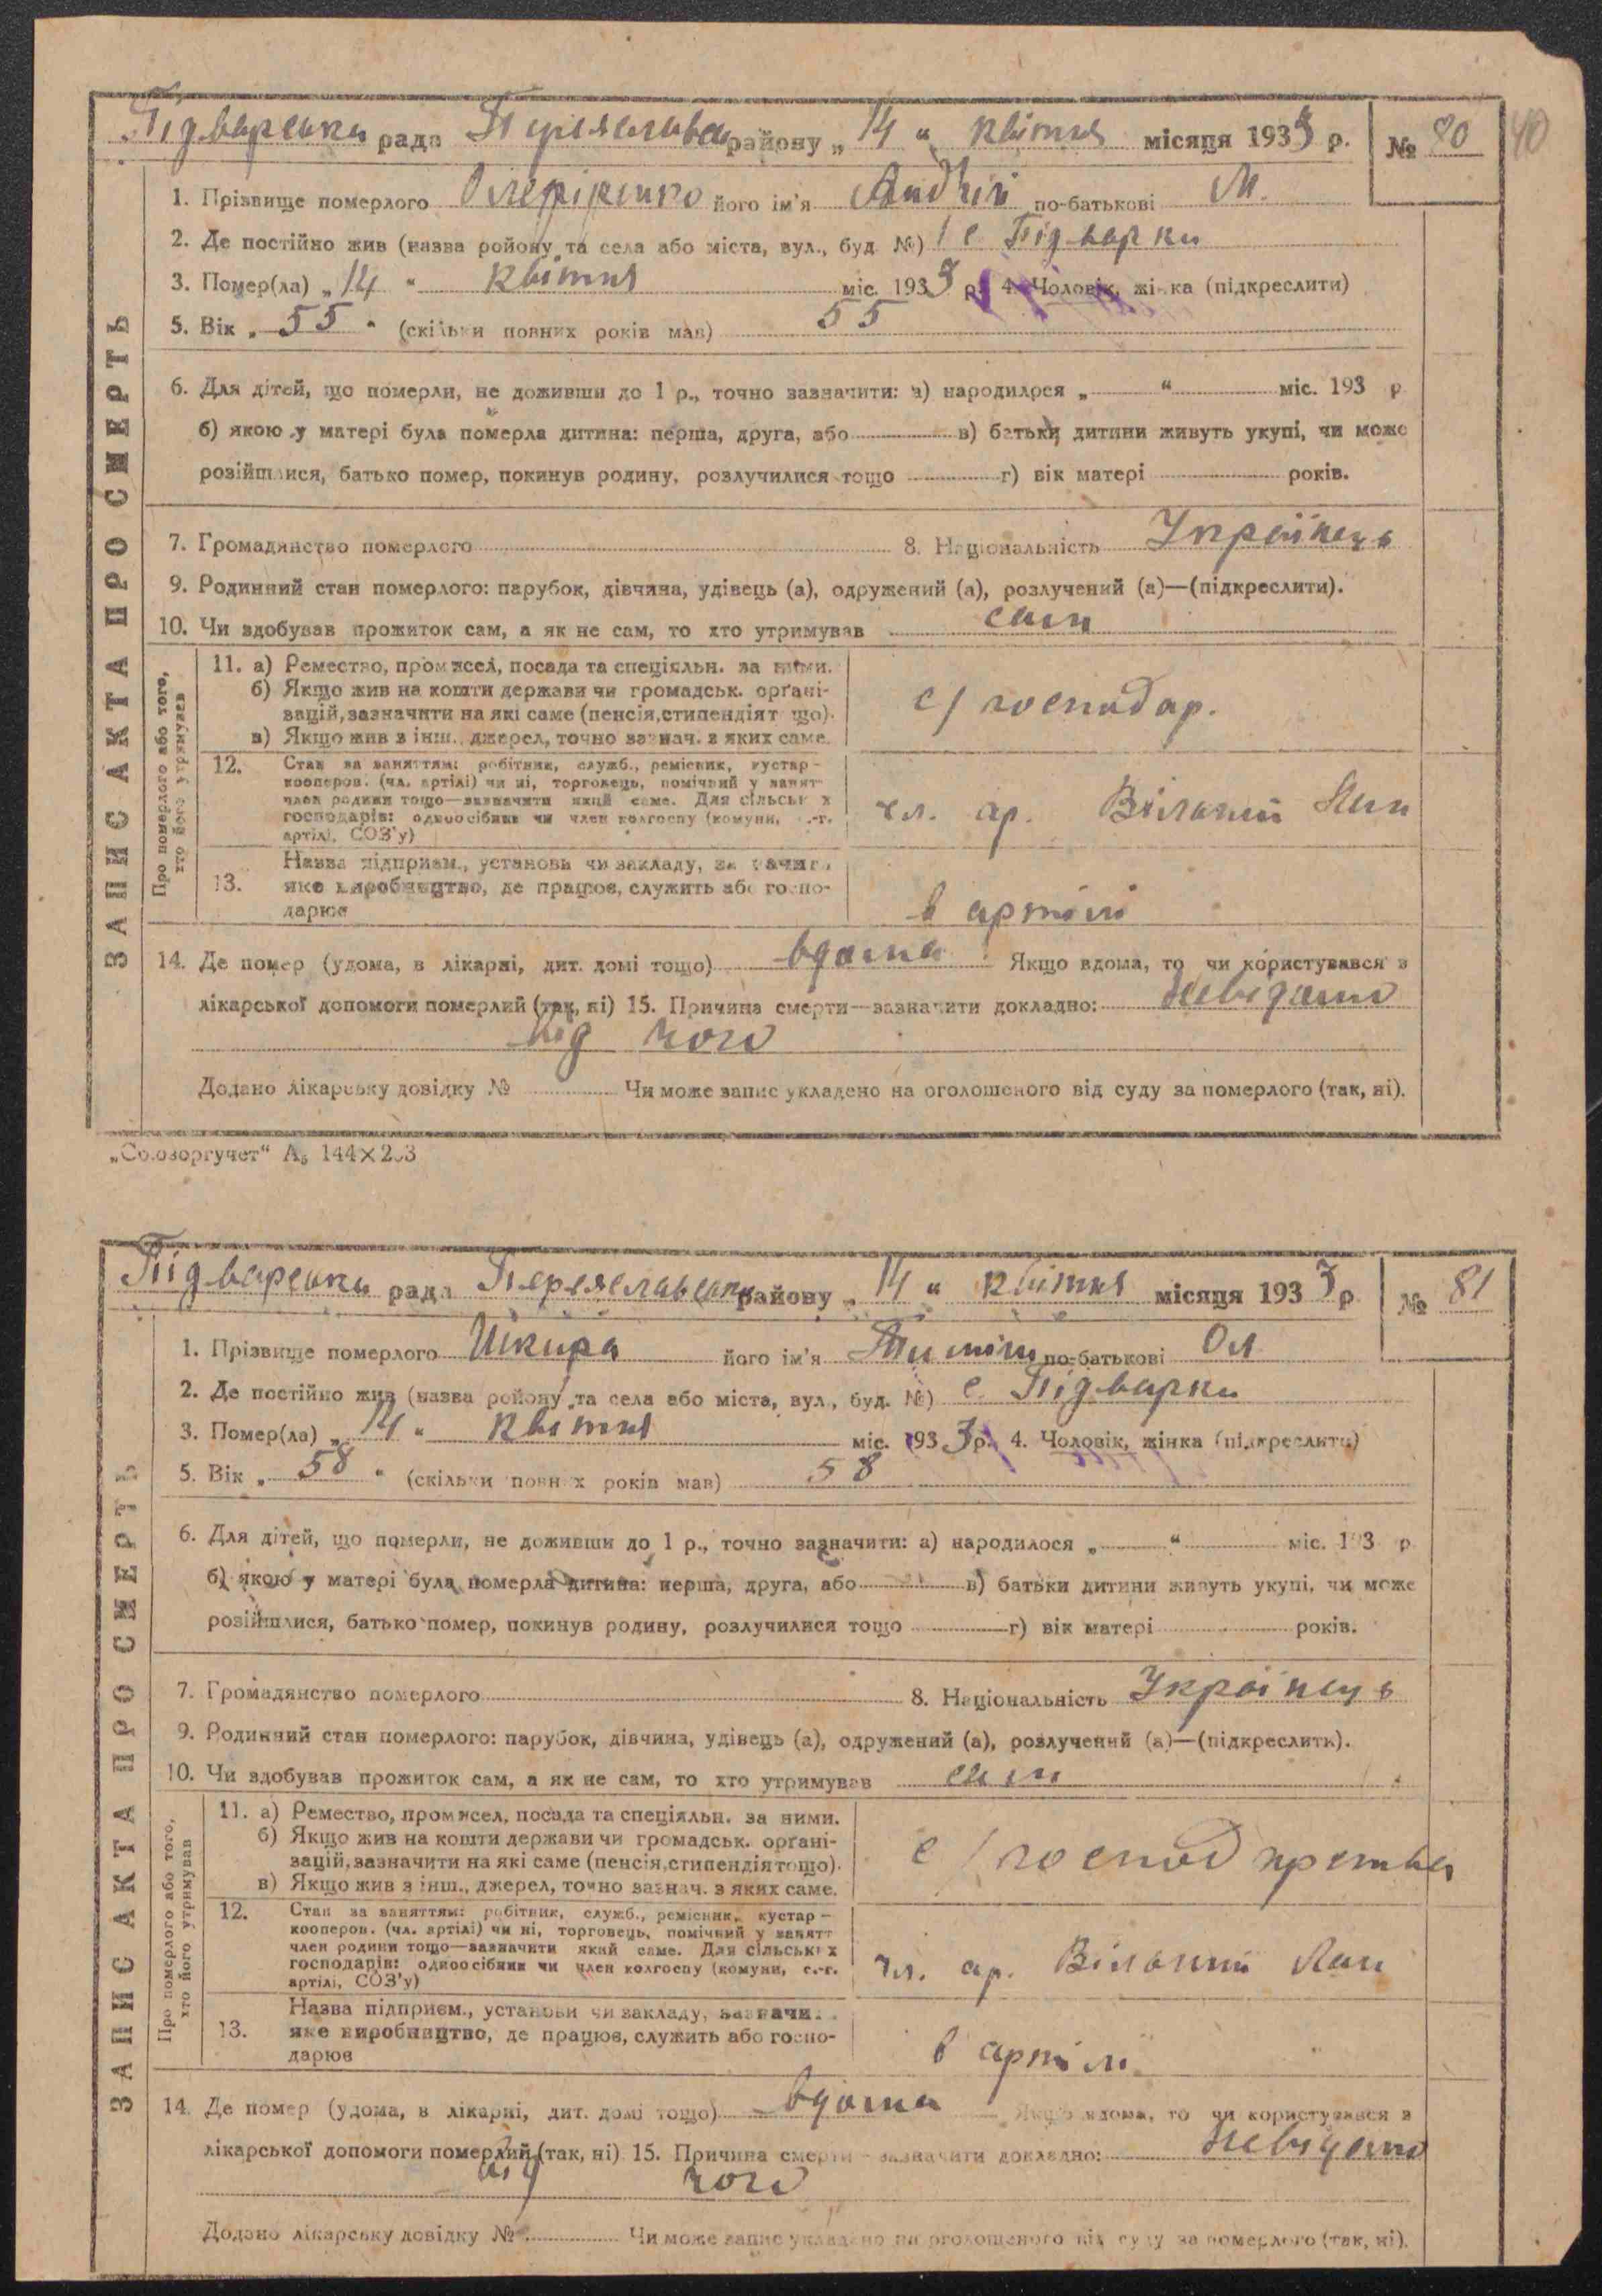 Підварська рада Переяславськ району „14“ квітня місяця 1933 р. № 80
40
ЗАПИС АКТА ПРО СМЕРТЬ
1. Прізвище померлого його ім'я Андрій по-батькові М.
2. Де постійно жив (назва ройону та села або міста, вул., буд. №) с Підварки
3. Помер(ла) „14“ квітня міс. 1933 р. 4. Чоловік, жінка (підкреслити)
5. Вік „55“ (скільки повних років мав) 55
6. Для дітей, що померли, не доживши до 1 р., точно зазначити: а) народилося „ “ міс. 193 р
б) якою у матері була померла дитина: перша, друга, або в) батьки дитини живуть укупі, чи може
розійшлися, батько помер, покинув родину, розлучилися тощо г) вік матері років.
7. Громадянство померлого 8. Національність Українець
9. Родинний стан померлого: парубок, дівчина, удівець (а), одружений (а), розлучений (а)—(підкреслити).
10. Чи здобував прожиток сам, а як не сам, то хто утримував сам
Про померлого або того, хто його утримував
11. а) Ремество, промисел, посада та спеціяльн. за ними.
б) Якщо жив на кошти держави чи громадськ. орґані-
зацій, зазначити на які саме (пенсія, стипендіят що).
в) Якщо жив з інш., джерел, точно зазнач. з яких саме.
с/господар.
12. Стан за заняттям: робітник, служб., ремісник, кустар-
кооперов. (чл. артілі) чи ні, торговець, помічний у занят
член родини тощо—зазначити який саме. Для сільськ х
господарів: одноосібник чи член колгоспу (комуни, с.-г.
артілі, СОЗ'у)
чл. ар. Вільний Лан
13. Назва підприєм., установи чи закладу, зазначит
яке виробництво, де працює, служить або госпо-
дарює
в артілі
14. Де помер (удома, в лікарні, дит. домі тощо) вдома Якщо вдома, то чи користувався з
лікарської допомоги померлий (так, ні) 15. Причина смерти—зазначити докладно: невідомо
від чого
Додано лікарську довідку № Чи може запис укладено на оголошеного від суду за померлого (так, ні).
„Союзоргучет“ А₅ 144×203
Підварська рада Переяславськ району „14“ квітня місяця 1933 р № 81
ЗАПИС АКТА ПРО СМЕРТЬ
1. Прізвище померлого Шкира його ім'я Тиміш по-батькові Ол
2. Де постійно жив (назва ройону та села або міста, вул., буд. №) с. Підварки
3. Помер(ла) „14“ квітня міс. 1933 р. 4. Чоловік, жінка (підкреслити)
5. Вік „58“ (скільки повних років мав) 58
6. Для дітей, що померли, не доживши до 1 р., точно зазначити: а) народилося „ “ міс. 193 р
б) якою у матері була померла дитина: перша, друга, або в) батьки дитини живуть укупі, чи може
розійшлися, батько помер, покинув родину, розлучилися тощо г) вік матері років.
7. Громадянство померлого 8. Національність Українець
9. Родинний стан померлого: парубок, дівчина, удівець (а), одружений (а), розлучений (а)—(підкреслити).
10. Чи здобував прожиток сам, а як не сам, то хто утримував сам
Про померлого або того, хто його утримував
11. а) Ремество, промисел, посада та спеціяльн. за ними.
б) Якщо жив на кошти держави чи громадськ. орґані-
зацій, зазначити на які саме (пенсія, стипендія тощо).
в) Якщо жив з інш., джерел, точно зазнач. з яких саме.
12. Стан за заняттям: робітник, служб., ремісник, кустар-
кооперов. (чл. артілі) чи ні, торговець, помічний у занятт
член родини тощо—зазначити який саме. Для сільськ х
господарів: одноосібник чи член колгоспу (комуни, с.-г.
артілі, СОЗ'у)
чл. ар. Вільний Лан
13. Назва підприєм., установи чи закладу, зазначи
яке виробництво, де працює, служить або госпо-
дарює
в артілі
14. Де помер (удома, в лікарні, дит. домі тощо) вдома Якщо вдома, то чи користувався з
лікарської допомоги померлий (так, ні) 15. Причина смерти—зазначити докладно: невідомо
від чого
Додано лікарську довідку № Чи може запис укладено на оголошеного від суду за померлого (так, ні).